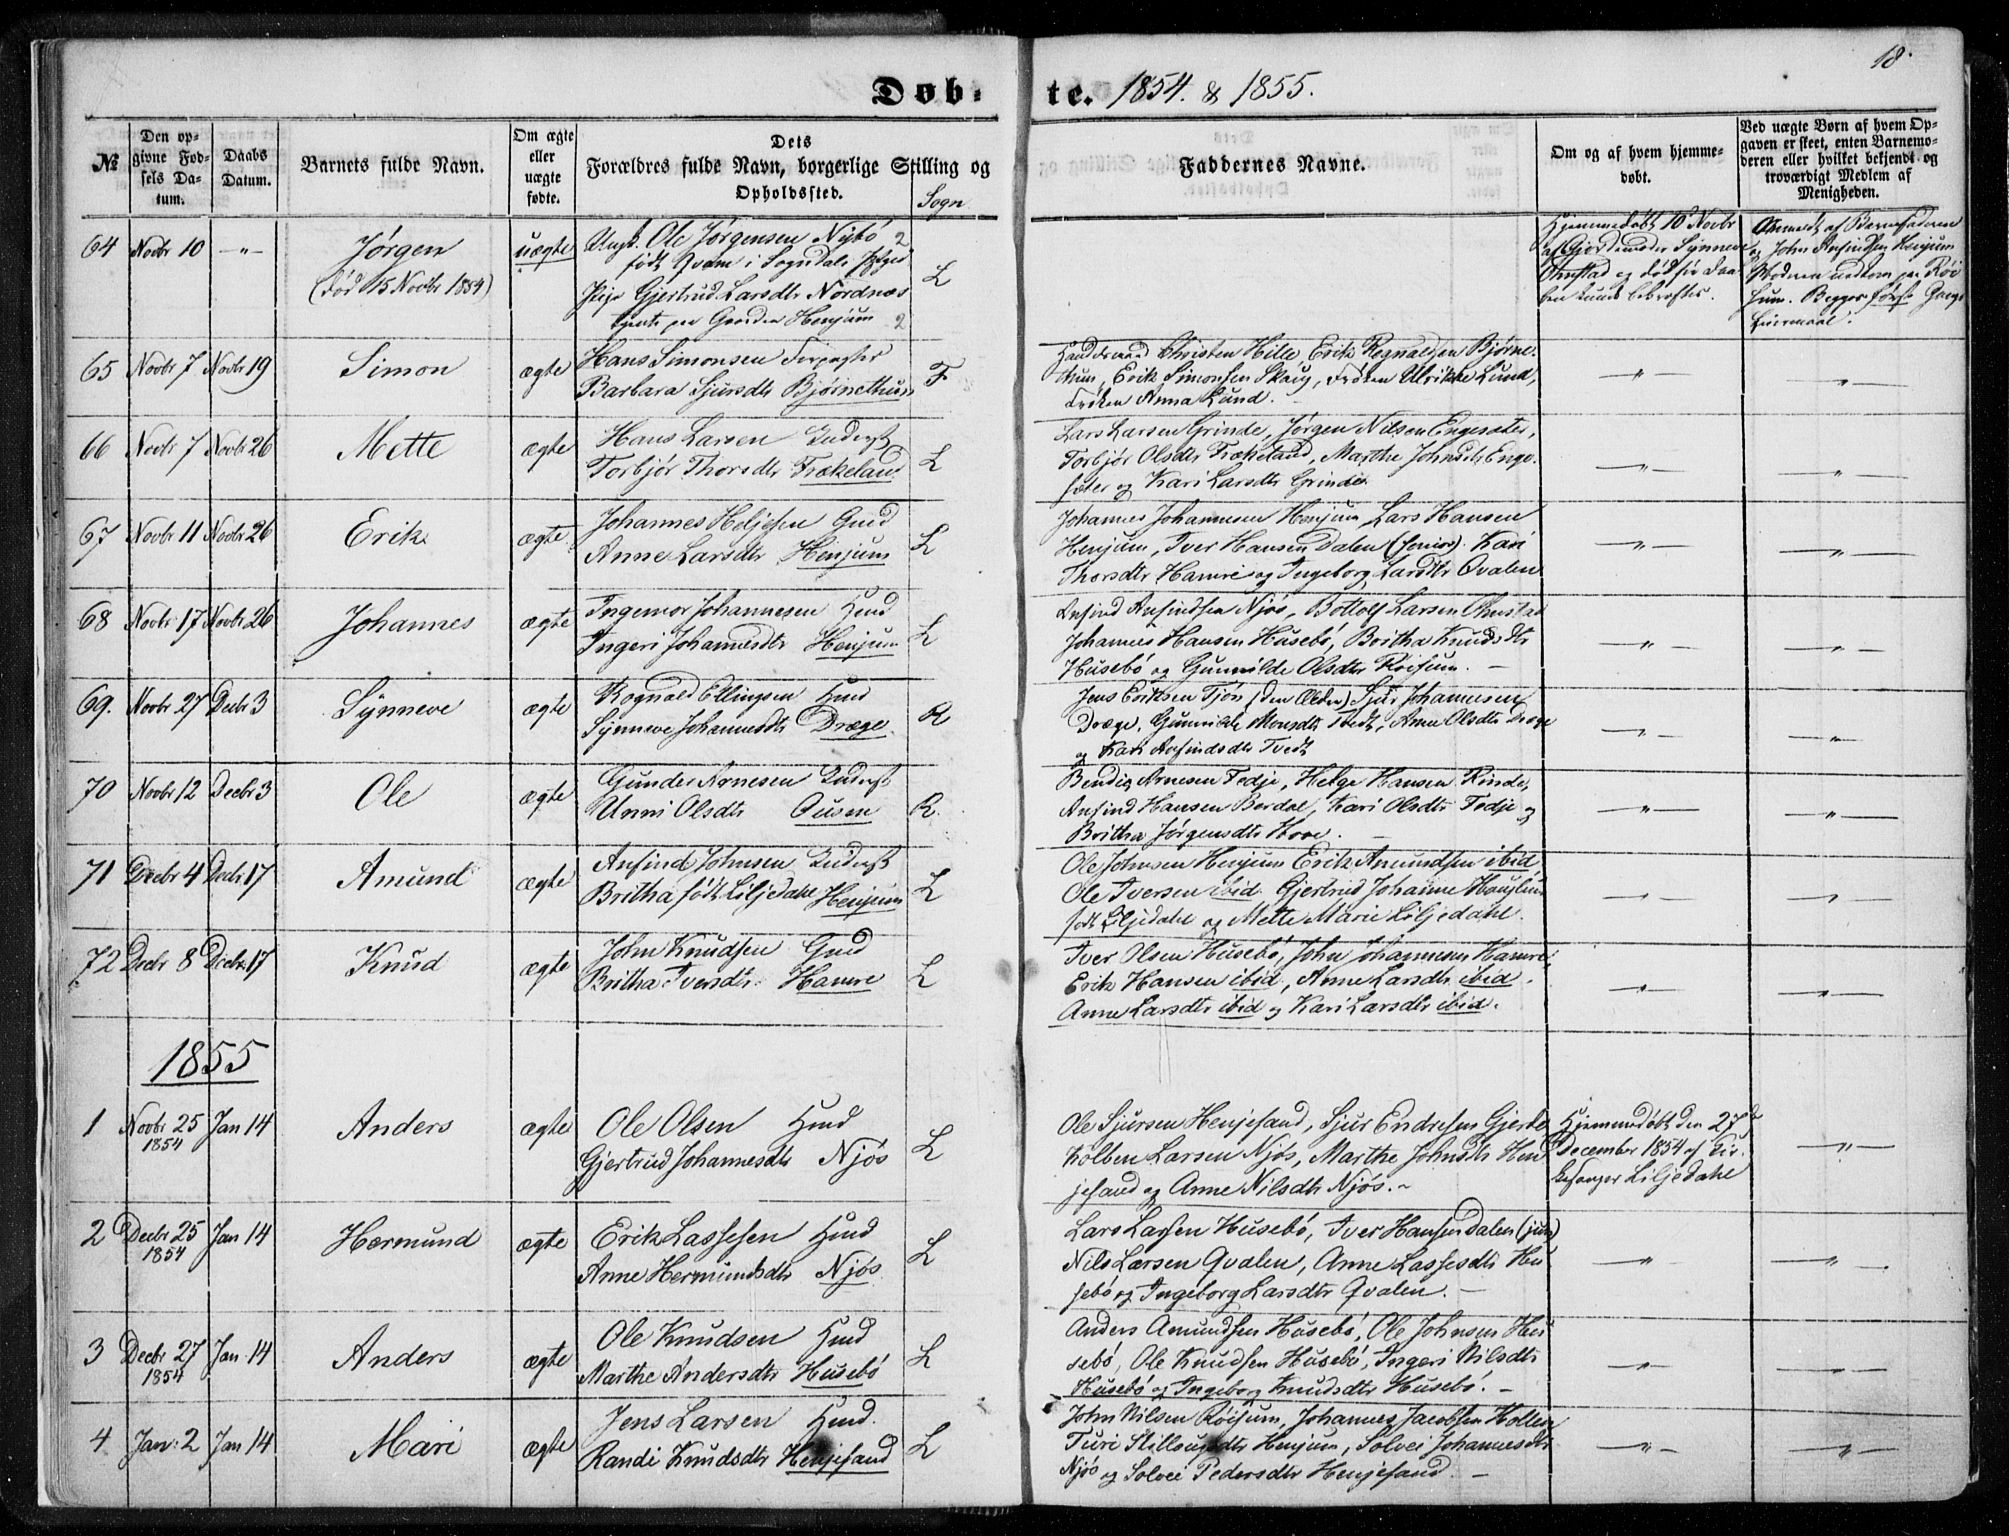 18.
Døb-
te. 1854. & 1855.
№
Den op-
givne Fød-
sels Da-
tum.
Daabs
Datum.
Barnets fulde Navn.
Om ægte
eller
uægte
fødte.
Dets
Forældres fulde Navn, borgerlige Stilling og
Opholdssted.
Sogn
Faddernes Navne.
Om og af hvem hjemme-
døbt.
Ved uægte Børn af hvem Op-
gaven er skeet, enten Barnemo-
deren eller hvilket bekjendt og
troværdigt Medlem af
Menigheden.
64 Novbr 10 — " — Jørgen
(død 15 Novbr 1854)
uægte
Ungk. Ole Jørgensen Nybö 2
født Qvam i Sogndals Prgd
Pige Gjertrud Larsdtr Nordnæs
tjente paa Gaarden Henjum 2
L
Hjemmedøbt 10 Novbr
af Gjordemoder Synneve
Ohnstad og død før Daa-
ben kunde bekræftes.
Anmeldt af Barnefaderen
og John Anfindsen Henjum
Moderen udkom paa Röi-
sum. Begges første Gangs
Leiermaal.
65 Novbr 7 Novbr 19 Simon ægte
Hans Simonsen Forpagter
Barbara Sjursdtr Bjørnethun
F
Christen Hille, Erik Rognaldsen Bjørne-
thun, Erik Simonsen Skaug, Frøken Ulrikke Lund,
Frøken Anna Lund.
— " — — " —
66 Novbr 7 Novbr 26 Mette ægte
Hans Larsen Inderst
Torbjör Thorsdtr Frækeland
L
Lars Larsen Grinde, Jørgen Nilsen Engesæter,
Torbjör Olsdtr Frækeland, Marthe Johnsdtr Enge-
sæter og Kari Larsdtr Grinde.
— " — — " —
67 Novbr 11 Novbr 26 Erik ægte
Johannes Heljesen Gmd
Anne Larsdtr Henjum
L
Johannes Johannesen Henjum Lars Hansen
Henjum, Iver Hansen Dalen (senior). Kari
Thorsdtr Hamre og Ingeborg Larsdtr Qvalen
— " — — " —
68 Novbr 17 Novbr 26 Johannes ægte
Ingemor Johannesen Hmd
Ingeri Johannesdtr Henjum
L
Anfind Anfindsen Njøs, Bottolf Larsen Ohnstad
Johannes Hansen Husebö, Britha Knudsdtr
Husebö og Gunnilde Olsdtr Röisum. —
— " — — " —
69. Novbr 27 Decbr 3 Synneve ægte
Rognald Ellingsen Hmd
Synneve Johannesdtr Dræge.
R
Jens Eriksen Tjön (den Ældre) Sjur Johannesen
Dræge, Gunnilde Monsdtr Tvedt, Anne Olsdtr Dræge
og Kari Anfindsdtr Tvedt
— " — — " —
70 Novbr 12 Decbr 3 Ole ægte
Gunder Arnesen Inderst
Unni Olsdtr Ousen
R.
Bendix Arnesen Fedje, Helge Hansen Rinde,
Anfind Hansen Berdal, Kari Olsdtr Fedje og
Britha Jørgensdtr Hove. —
— " — — " —
71 Decbr 4 Decbr 17 Amund ægte
Anfind Johnsen Inderst
Britha født Liljedahl Henjum
L
Ole Johnsen Henjum Erik Amundsen ibid
Ole Iversen ibid. Gjertrud Johanne Haugland
født Liljedahl og Mette Marie Liljedahl.
— " — — " —
72 Decbr 8 Decbr 17 Knud ægte
John Knudsen Gmd
Britha Iversdtr Hamre
L
Iver Olsen Husebö, John Johannesen Hamre,
Erik Hansen ibid, Anne Larsdtr ibid.
Anne Larsdtr ibid og Kari Larsdtr ibid.
— " — — " —
1855
1 Novbr 25
1854
Jan 14 Anders ægte
Ole Olsen Hmd
Gjertrud Johannesdtr Njös
L
Ole Sjursen Henjesand, Sjur Endresen Gjerde
Kolben Larsen Njös, Marthe Johnsdtr Hen-
jesand og Anne Nilsdtr Njös. —
Hjemmedöbt den 27de
December 1854 af Kir-
kesanger Liljedahl
— " —
2 Decbr 25
1854
Jan 14 Hermund ægte
Erik Lassesen Hmd
Anne Hermundsdtr Njös
L
Lars Larsen Husebö, Iver Hansen Dalen (jun)
Nils Larsen Qvalen, Anne Lassesdtr Hu-
sebö og Ingeborg Larsdtr Qvalen. —
— " — — " —
3 Decbr 27
1854
Jan 14 Anders ægte
Ole Knudsen Hmd
Marthe Andersdtr Husebö
L
Anders Amundsen Husebö, Ole Johnsen Hu-
sebö, Ole Knudsen Husebö, Ingeri Nilsdtr
Husebö og Ingeborg Knudsdtr Husebö. —
— " — — " —
4 Jan: 2 Jan 14 Mari ægte
Jens Larsen Hmd.
Randi Knudsdtr Henjesand
L
John Nilsen Röisum, Johannes Jacobsen Hollen
Turi Stillaugsdtr Henjum, Solvei Johannesdtr
Njös og Solvei Pedersdtr Henjesand. —
— " — — " —